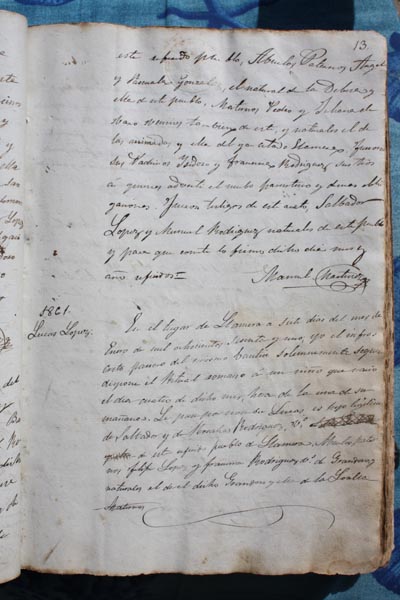 13.
este espresado pueblo, Abuelos Paternos Angel
y Pascuala Gonzalez, el natural de la
ella de este pueblo. Maternos Pedro y Juliana
vecinos tambien de este, y naturales el de
las y ella del ya citado Llamera. Fueron
sus Padrinos Isidoro y Francisca Rodriguez, sus tios
a quienes advertí el parentesco y demas obli-
gaciones. Fueron testigos de este acto, Salbador
Lopez y Manuel Rodriguez naturales de este pueblo
y para que conste lo firmo dicho dia mes y
año
Manuel Martinez
1861.
Lucas Lopez.
En el lugar de Llamera a siete dias del mes de
Enero de mil ochocientos sesenta y uno, yo el infras-
cripto parroco del mismo Bautice Solemnemente Segun
dispone el Ritual romano a un niño que nació
el dia cuatro de dicho mes, hora de la una de su
mañana. Se puso por nombre Lucas es hijo legitimo
de Salbador y de Rodriguez, v.s
de este pueblo de Llamera. Abuelos pater-
nos Felipe Lopez y Francisca Rodriguez v.s de
naturales el de el dicho y ella de la
Maternos